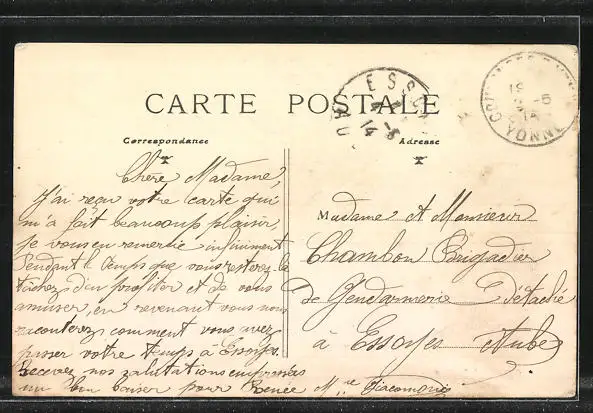 CARTE POSTALE
Correspondance
Adresse
ESSOYES
14
AUBE
19
5-6
14
YONNE
Chère Madame,
J'ai reçu votre carte qui
m'a fait beaucoup plaisir,
je vous en remercie infiniment
Pendant le temps que vous resterez là
tâchez d'en profiter et de vous
amuser, en revenant vous nous
raconterez comment vous avez
passer votre temps à Essoyes.
Recevez nos salutations empressées
un bon baiser pour Renée Mme Giacomoni
Madame et Monsieur
Chambon Brigadier
de Gendarmerie Détaché
à Essoyes Aube